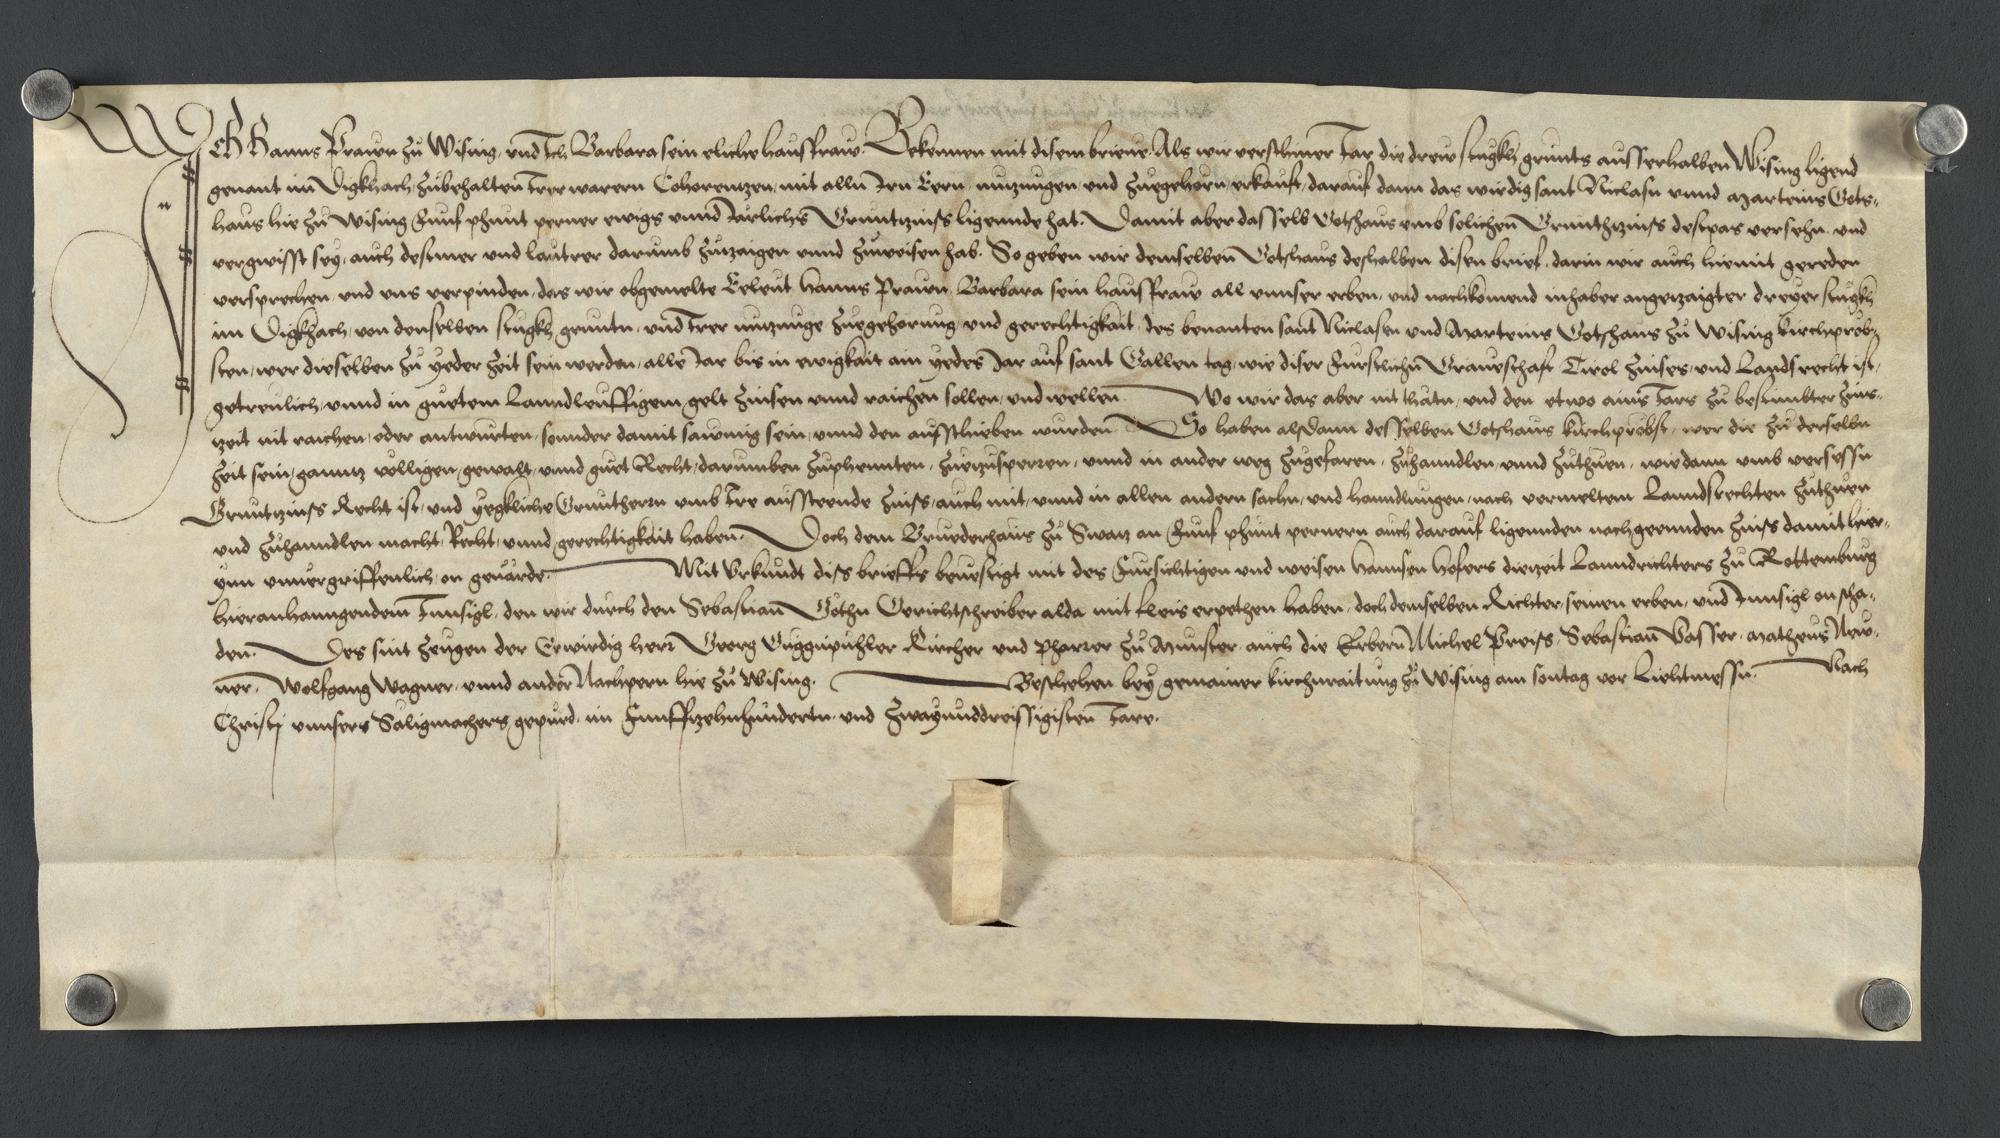 Ich Hanns Prawn zu Wising, vnd Ich Barbara sein eliche hausfraw. Bekennen mit disem brieue, Als wir verschiner Jar die drew stugkh grunts ausserhalben Wising ligend
genant im Digkhach, zubehalten Irer warern Cohorentzen, mit alln Irn Eern, nutzungen, vnd zuegehorn erkauft, darauf dann das wirdig sant Niclasn vnnd Marteins Gots-
haus hie zu Wising Funf phunt perner ewigs vnnd Järlichs Gruntzinss ligennde hat. Damit aber dasselb Gotshaus vmb solichen Grunthzinss destpas versehn vnd
vergwisst sey, auch destmer vnd lautrer darumb zutzaigen vnnd zuweisen hab. So geben wir demselben Gotshaus deshalben disen brief, darin wir auch hiemit gereden
versprechen, vnd vns verpinden, das wir obgemelte Eeleut Hanns Prawn, Barbara sein hausfraw all vnnser erben, vnd nachkomend inhaber angetzaigter dreyer stugkh
im Digkhach, von denselben stugkh gruntn, vnd Irer nutzunge zuegehörung, vnd gerechtigkait, des benanten sant Niclasen vnd Marteins Gotshaus zu Wising kirchpröb-
sten, wer dieselben zu yeder zeit sein werden, alle Jar bis in ewigkait am yedes Jar auf sant Gallen tag, wie diser Furstlichn Graueschaft Tirol zinses, vnd Lands recht ist,
getreulich, vnnd in guetem Lanndleuffigem gelt zinsen vnnd raichen sollen, vnd wellen. Wo wir das aber nit thätn, vnd den etwo ains Jars zu bestimbter zins-
tzeit nit raichen, oder antwurten, sonnder damit sawmig sein, vnnd den aufschieben wurden. So haben alsdann desselben Gotshaus kirchpröbst, wer die zu derselbn
zeit sein, ganntz völligen, gewalt, vnnd guet Recht, darumben zuphennten, zuuersperren, vnnd in ander weg zugefaren, zuhanndlen, vnnd zuthuen, wie dann vmb versessn
Gruntzinss Recht ist, vnd yegkliche Gruntherrn vmb Ire aussteende zinss, auch mit, vnnd in allen andern sachn, vnd hanndlungen, nach vermeltem Lanndsrechten zuthuen
vnd zuhanndlen macht, Recht, vnnd gerechtigkait haben. Doch dem Bruederhaus zu Swatz an Funf phunt pernern auch darauf ligennden nachgeennden zinss damit hier-
ynn vnuergriffenlich, on geuärde. Mit Vrkundt diss brieffs beuestigt mit des Fursichtigen vnd weisen Hannsen Hofers dietzeit Lanndrichters zu Rottemburg
hieranhanngendem Innsigl, den wir durch den Sebastian Göthn Gerichtschreiber alda mit fleis erpethen haben, doch demselben Richter, seinen erben, vnd Innsigl on scha-
den. Des sint zeugen der Erwirdig herr Georg Guggnpuhler Kircher vnd Pharrer zu Munster, auch die Erbern Michel Preiss, Sebastian Vasser, Matheus New-
ner, Wolfgang Wagner, vnnd ander Nachpern hie zu Wising. Beschehen bey gemainer kirchnraitung zu Wising am sontag vor Liechtmessn. Nach
Christj vnnsers Säligmachers gepurd, im Funfftzehnhundertn, vnd zwayunddreissigisten Jare.